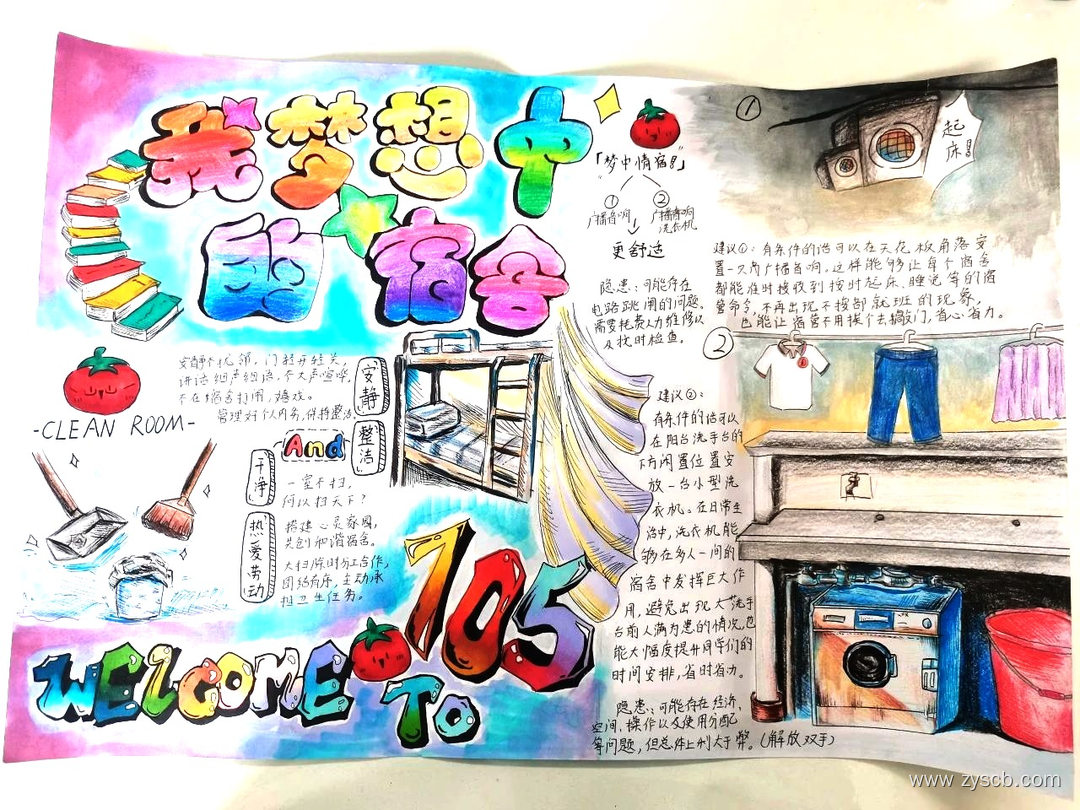 我梦想中
的宿舍
「梦中情宿」
① ②
广播音响 广播音响
洗衣机
更舒适
隐患:可能存在
电路跳闸的问题。
需要耗费人力维修以
及按时检查。
①
起
床
建议①:有条件的话可以在天花板角落安
置一只广播音响,这样能够让每个宿舍
都能准时接收到按时起床、睡觉等的宿
管命令,不再出现不按部就班的现象,
也能让宿管不用挨个去敲门,省心省力。
②
建议②:
有条件的话可以
在阳台洗手台的
下方闲置位置安
放一台小型洗
衣机。在日常生
活中,洗衣机能
够在多人一间的
宿舍中发挥巨大作
用,避免出现大洗手
台前人满为患的情况也
能大幅度提升同学们的
时间安排,省时省力。
隐患:可能存在经济、
空间、操作以及使用分配
等问题,但总体上利大于弊。(解放双手)
安静个优领,门轻开轻关,
讲话细声细语,不大声喧哗,
不在宿舍打闹,嬉戏。
管理好个人内务,保持整洁
安静
-CLEAN ROOM-
And
整洁
干净
一室不扫,
何以扫天下?
热爱劳动
搭建心灵家园,
共创和谐宿舍。
大扫除时分工合作,
团结有序,主动承
担卫生任务。
705
WELCOME
TO
www.zyscb.com